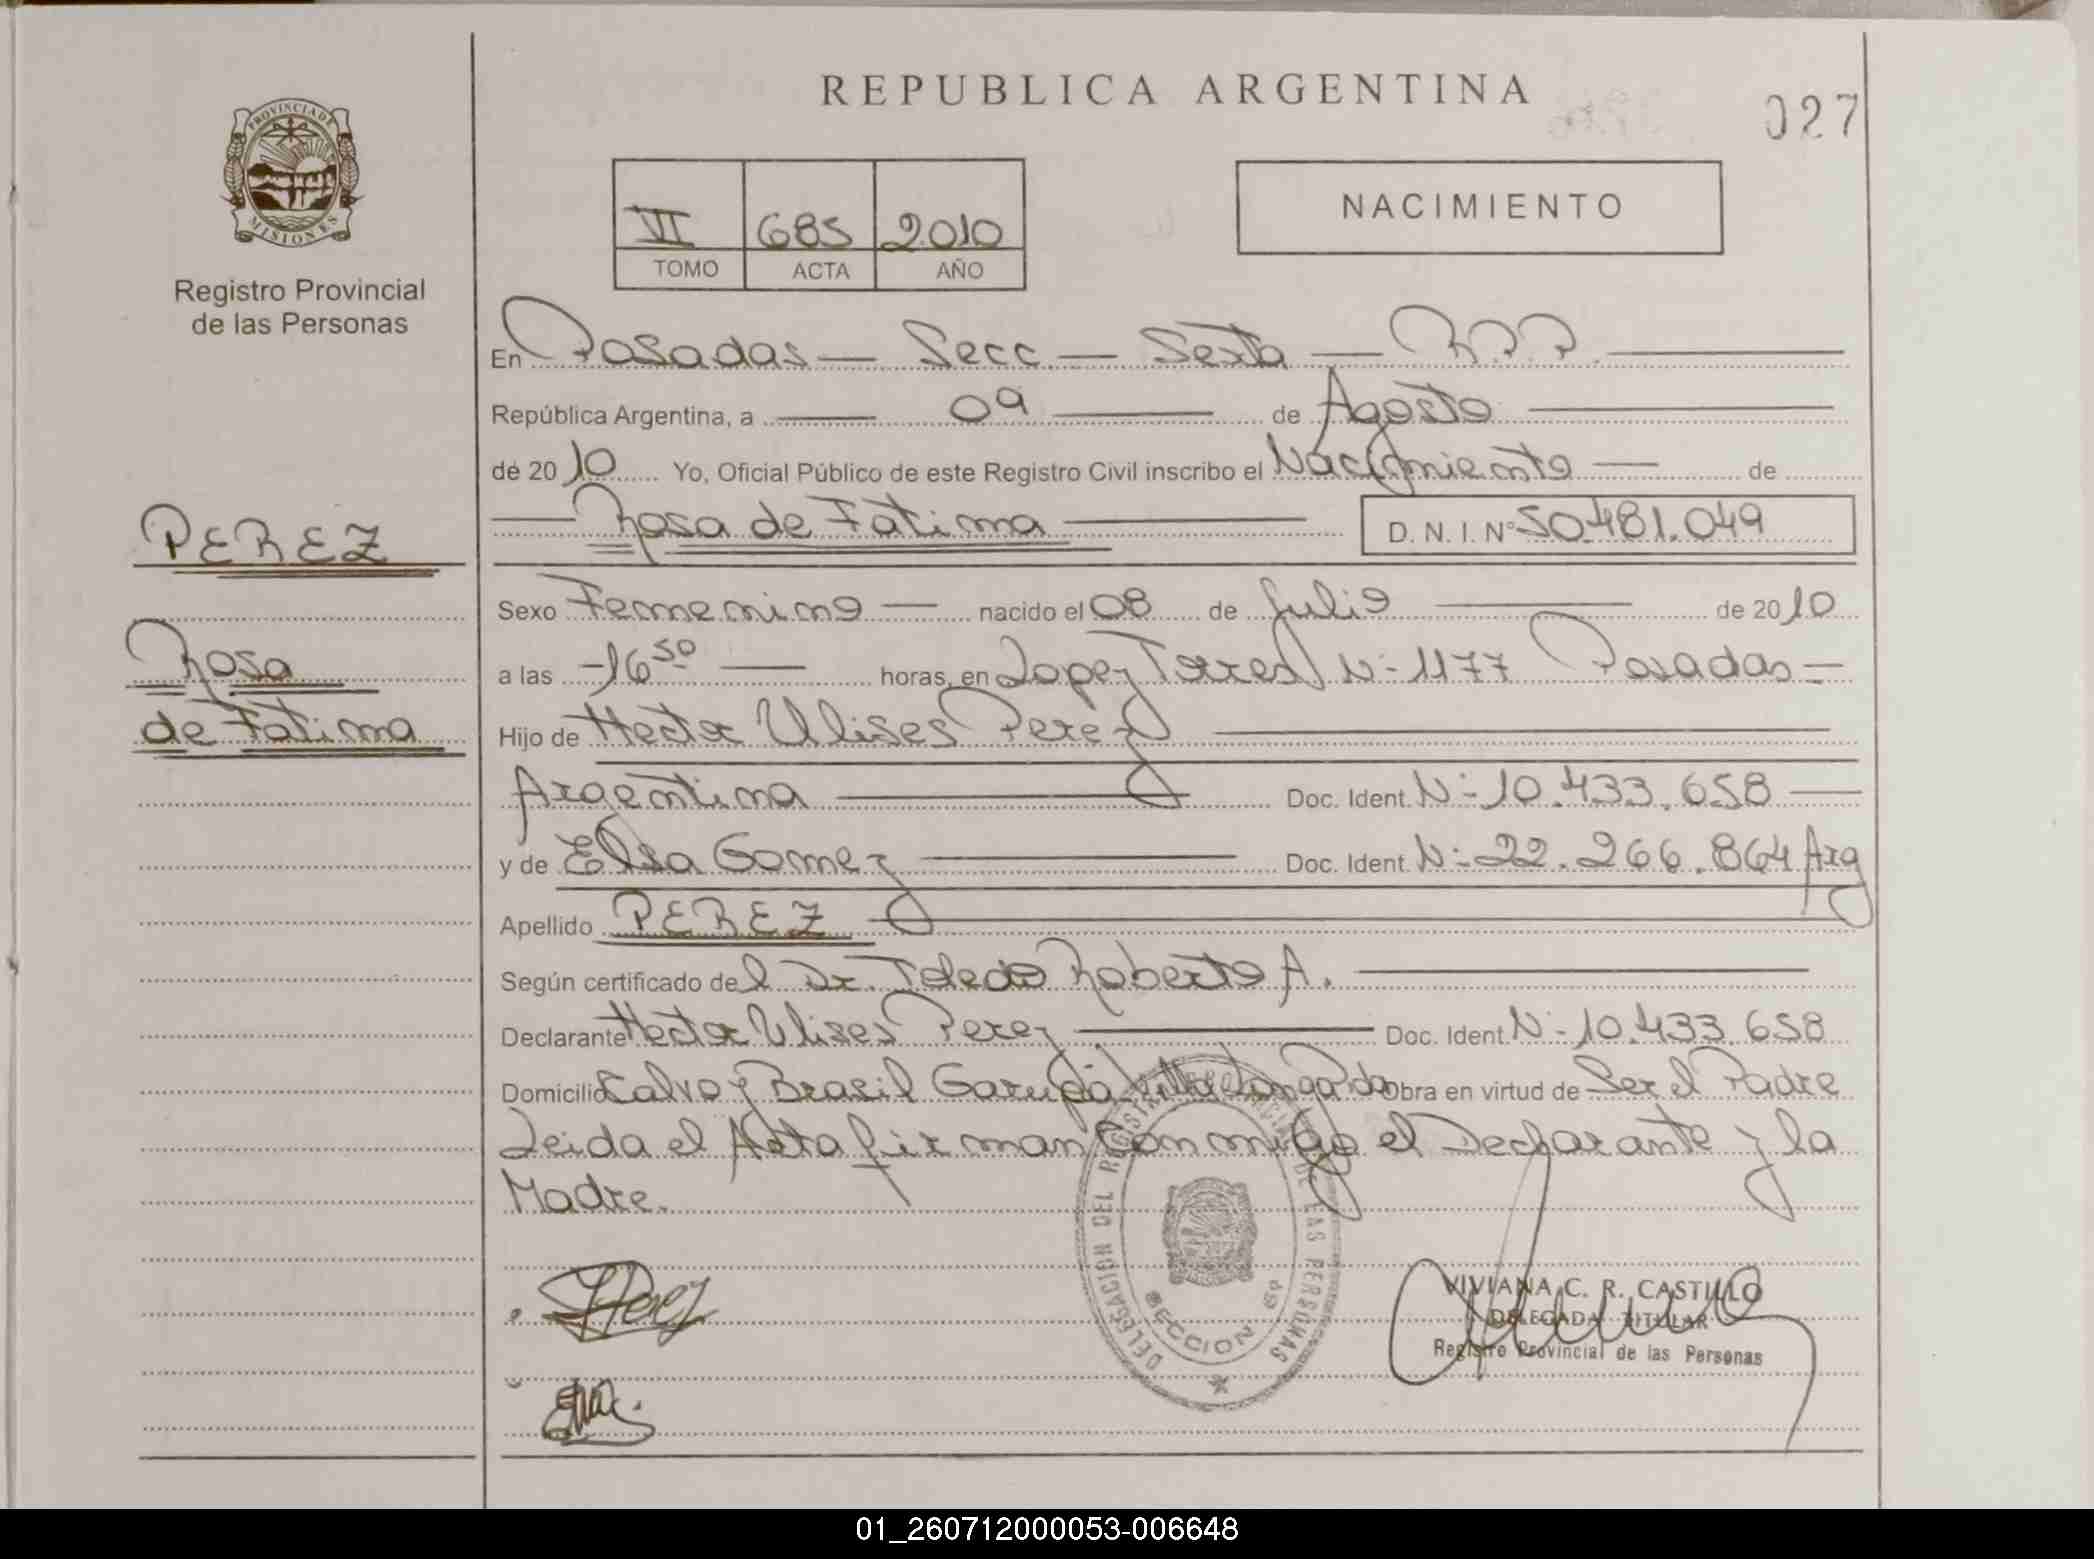 REPUBLICA ARGENTINA
027
PROVINCIA DE MISIONES
Registro Provincial
de las Personas
VI 685 2010
TOMO ACTA AÑO
NACIMIENTO
En Posadas — Secc. — Sexta — R.P.P.
República Argentina, a — 09 — de Agosto —
de 2010 Yo, Oficial Público de este Registro Civil inscribo el Nacimiento — de
— Rosa de Fatima — D. N. I. Nº 50.481.049
PEREZ
Rosa
de Fatima
Sexo Femenino — nacido el 08 de Julio — de 2010
a las -16 50 — horas, en Lopez Torres N- 1177 Posadas —
Hijo de Hector Ulises Perez —
Argentina — Doc. Ident. N- 10.433.658 —
y de Elsa Gomez — Doc. Ident. N- 22.266.864 Arg
Apellido PEREZ —
Según certificado del Dr. Toledo Roberto A. —
Declarante Hector Ulises Perez — Doc. Ident. N- 10.433.658
Domicilio Calvo y Brasil Garupá Villa Longa Pdas Obra en virtud de Ser el Padre
Leida el Acta firman Conmigo el Declarante y la
Madre.
HPerez
DELEGACION DEL REGISTRO PROVINCIAL DE LAS PERSONAS
SECCION 6ª
VIVIANA C. R. CASTILLO
DELEGADA TITULAR
Registro Provincial de las Personas
01_260712000053-006648